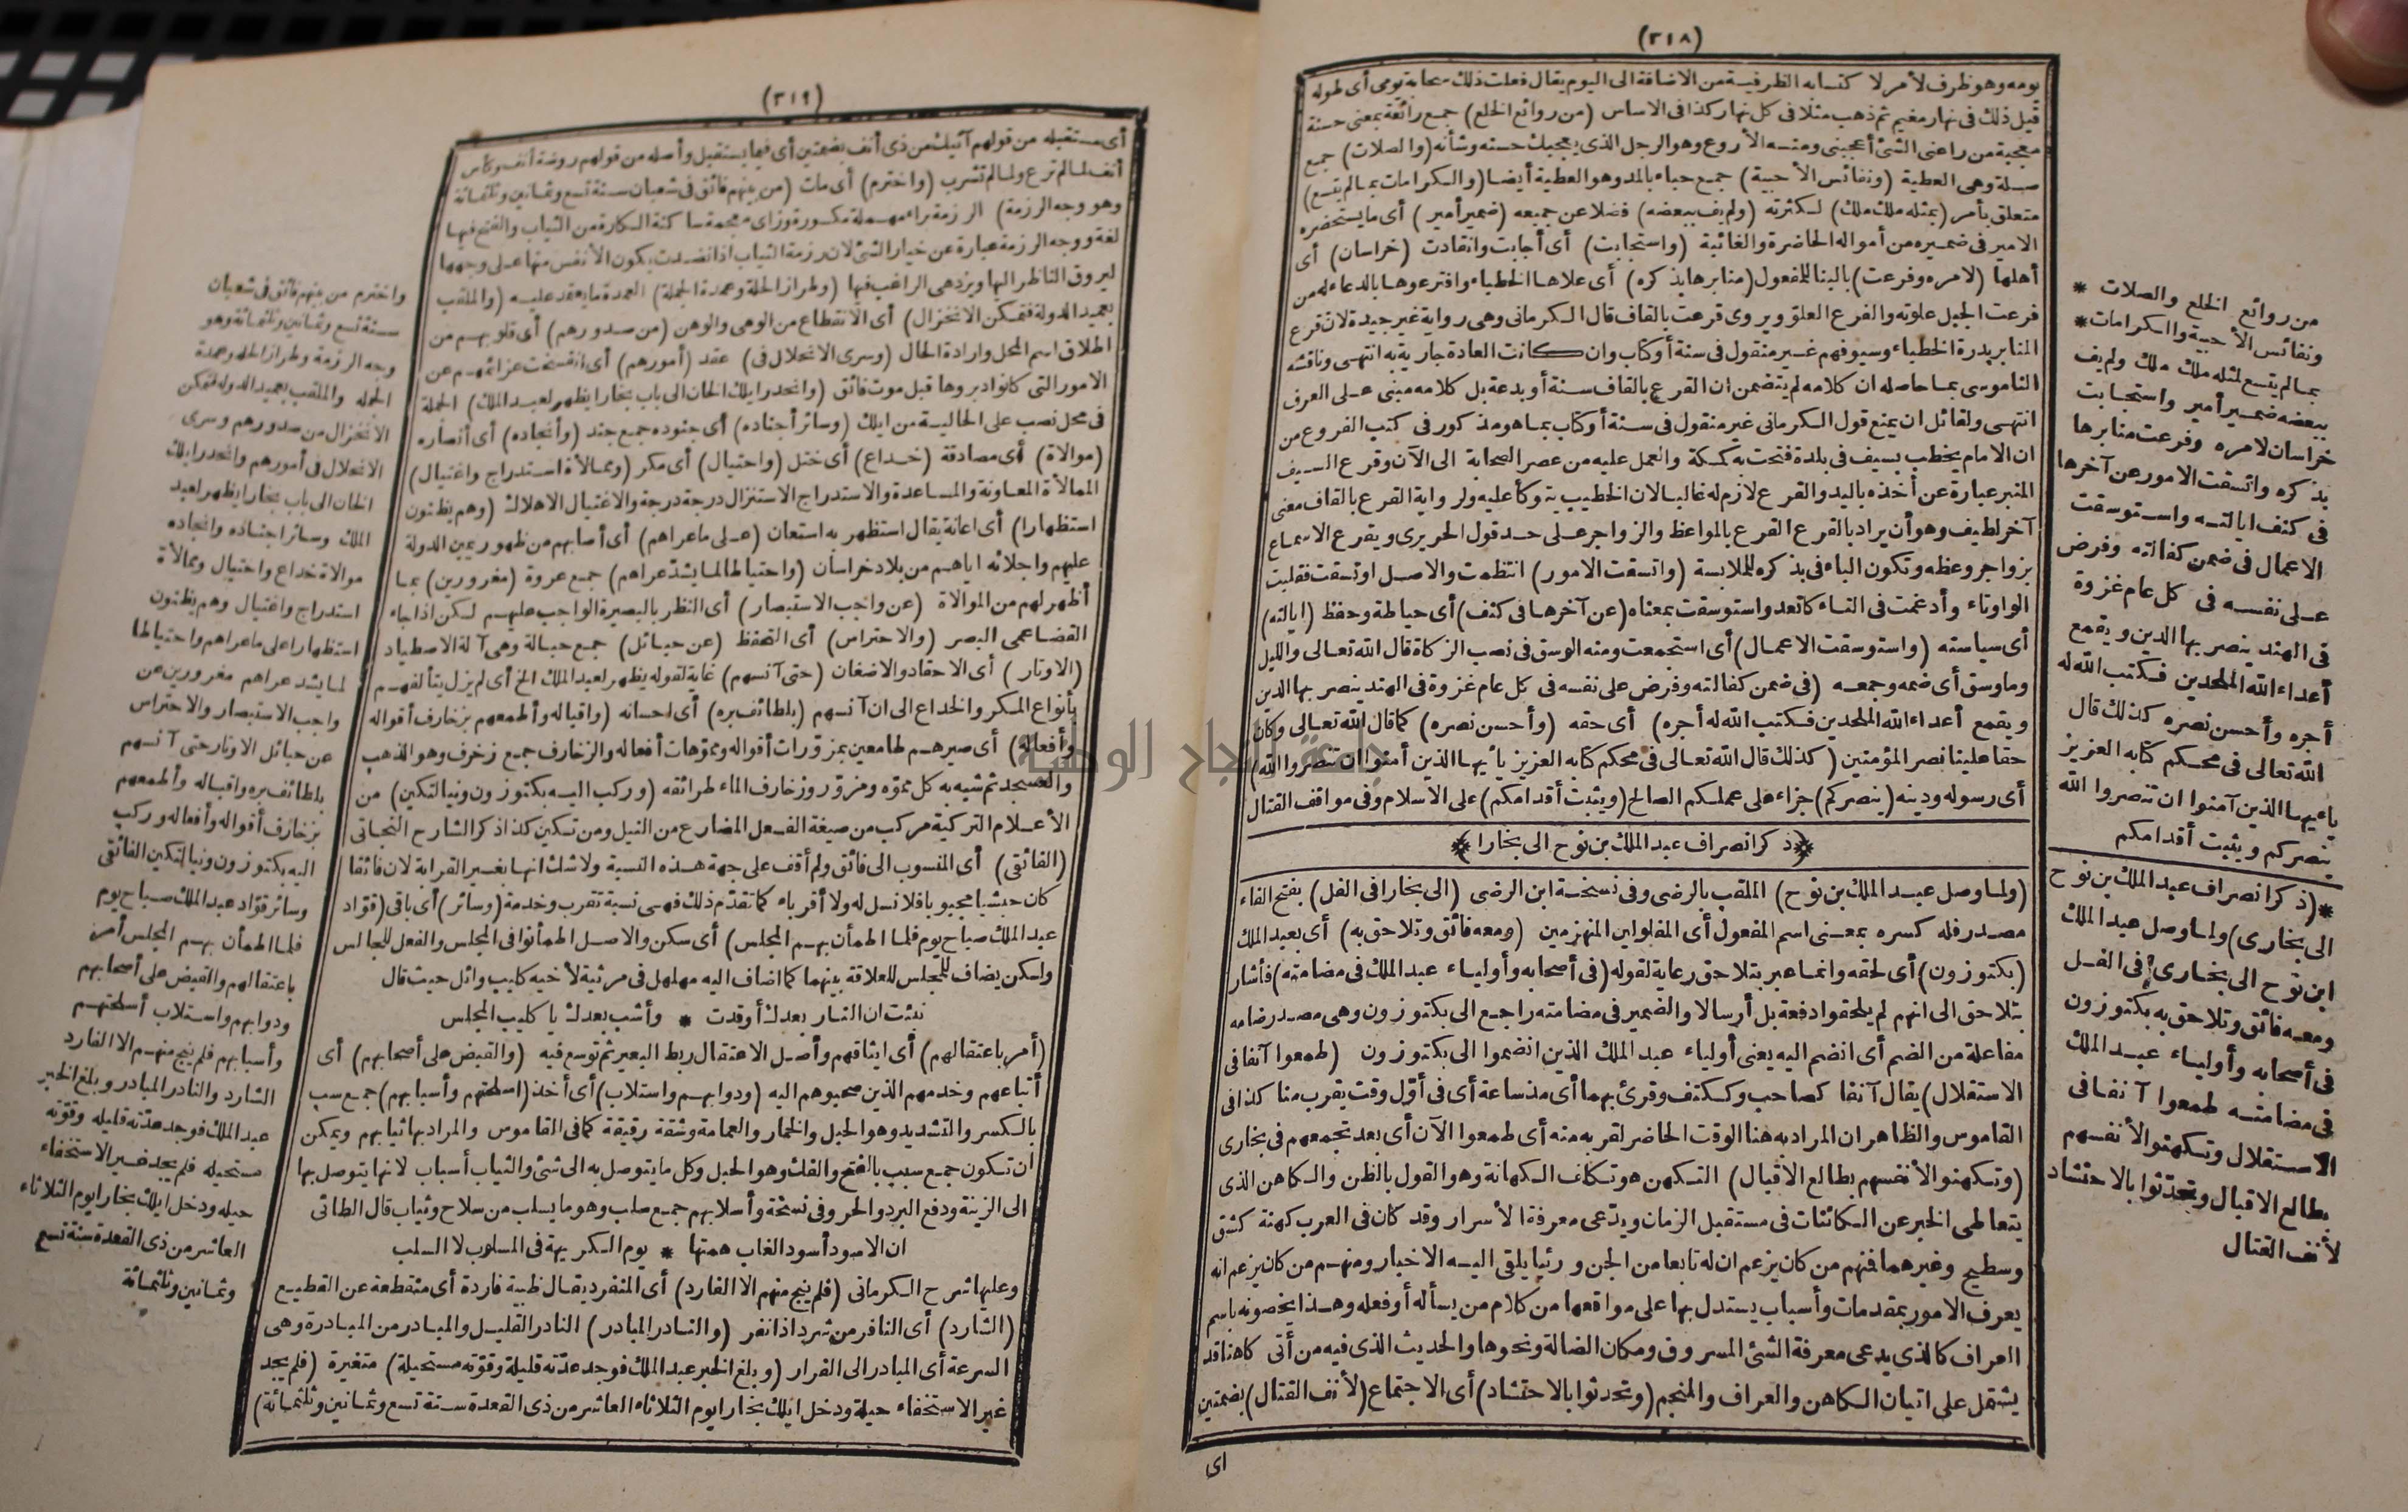 (٣١٨)
يومه وهو ظرف لأمر لا كتسابه الظرفية من الاضافة الى اليوم يقال فعلت ذلك سحابة يومى أى طوله
قيل ذلك فى نهار مغيم ثم ذهب مثلا فى كل نهار كذا فى الاساس (من روائع الخلع) جمع رائعة بمعنى حسنة
معجبة من راعنى الشئ أعجبنى ومنه الأروع وهو الرجل الذى يعجبك حسنه وشأنه (والصلات) جمع
صلة وهى العطية (ونفائس الأحبية) جمع حباء بالمد وهو العطية أيضا (والكرامات بمالم يتسع)
متعلق بأمر (بمثله ملك ملك) لكثرته (ولم يف ببعضه) فضلا عن جميعه (ضمير أمير) أى ما يستحضره
الامير فى ضميره من أمواله الحاضرة والغائبة (واستجابت) أى أجابت وانقادت (خراسان) أى
أهلها (لامره وفرعت) بالبنا للمفعول (منابرها بذكره) أى علاها الخطباء وافترعوها بالدعاء له من
فرعت الجبل علوته والفرع العلو ويروى قرعت بالقاف قال الكرمانى وهى رواية غير جيدة لان قرع
المنابر بدرة الخطباء وسيوفهم غير منقول فى سنة أو كتاب وان كانت العادة جارية به انتهى وناقشه
الناموسى بما حاصله ان كلامه لم يتضمن ان القرع بالقاف سنة أو بدعة بل كلامه مبنى على العرف
انتهى ولقائل ان يمنع قول الكرمانى غير منقول فى سنة أو كتاب بما هو مذكور فى كتب الفروع من
ان الامام يخطب بسيف فى بلدة فتحت به كمكة والعمل عليه من عصر الصحابة الى الآن وقرع السيف
المنبر عبارة عن أخذه باليد والقرع لازم له غالبا لان الخطيب يتوكأ عليه ولرواية القرع بالقاف معنى
آخر لطيف وهو أن يراد بالقرع القرع بالمواعظ والزواجر على حد قول الحريرى ويقرع الاسماع
بزواجر وعظه وتكون الباء فى بذكره للملابسة (واتسقت الامور) انتظمت والاصل اوتسقت فقلبت
الواو تاء وأدغمت فى التاء كاتعد واستوسقت بمعناه (عن آخرها فى كنف) أى حياطة وحفظ (ايالته)
أى سياسته (واستوسقت الاعمال) أى استجمعت ومنه الوسق فى نصب الزكاة قال الله تعالى والليل
وما وسق أى ضمه وجمعه (فى ضمن كفالته وفرض على نفسه فى كل عام غزوة فى الهند ينصر بها الدين
ويقمع أعداء الله الملحدين فكتب الله له أجره) أى حقه (وأحسن نصره) كما قال الله تعالى وكان
حقا علينا نصر المؤمنين (كذلك قال الله تعالى فى محكم كتابه العزيز يأيها الذين آمنوا ان تنصروا الله)
أى رسوله ودينه (ينصركم) جزاء على عملكم الصالح (ويثبت أقدامكم) على الاسلام وفى مواقف القتال
﴿ذكر انصراف عبد الملك بن نوح الى بخارا﴾
(ولما وصل عبد الملك بن نوح) الملقب بالرضى وفى نسخة ابن الرضى (الى بخارا فى الفل) بفتح الفاء
مصدر فله كسره بمعنى اسم المفعول أى المفلولين المنهزمين (ومعه فائق وتلاحق به) أى بعبد الملك
(بكتوزون) أى لحقه وانما عبر بتلاحق رعاية لقوله (فى أصحابه وأولياء عبد الملك فى مضامته) فأشار
بتلاحق الى انهم لم يلحقوا دفعة بل أرسالا والضمير فى مضامته راجع الى بكتوزون وهى مصدر ضامه
مفاعلة من الضم أى انضم اليه يعنى أولياء عبد الملك الذين انضموا الى بكتوزون (طمعوا آنفا فى
الاستقلال) يقال آنفا كصاحب وككتف وقرئ بهما أى مذ ساعة أى فى أول وقت يقرب منا كذا فى
القاموس والظاهر ان المراد به هنا الوقت الحاضر لقربه منه أى طمعوا الآن أى بعد تجمعهم فى بخارى
(وتكهنوا لأنفسهم بطالع الاقبال) التكهن هو تكلف الكهانة وهو القول بالظن والكاهن الذى
يتعاطى الخبر عن الكائنات فى مستقبل الزمان ويدعى معرفة الأسرار وقد كان فى العرب كهنة كشق
وسطيح وغيرهما فمنهم من كان يزعم ان له تابعا من الجن ورئيا يلقى اليه الاخبار ومنهم من كان يزعم انه
يعرف الامور بمقدمات وأسباب يستدل بها على مواقعها من كلام من يسأله أو فعله وهذا يخصونه باسم
العراف كالذى يدعى معرفة الشئ المسروق ومكان الضالة ونحوها والحديث الذى فيه من أتى كاهنا قد
يشتمل على اتيان الكاهن والعراف والمنجم (وتحدثوا بالاحتشاد) أى الاجتماع (لأنف القتال) بضمتين
اى
من روائع الخلع والصلات *
ونفائس الأحبية والكرامات *
بمالم يتسع لمثله ملك ملك ولم يف
ببعضه ضمير أمير واستجابت
خراسان لامره وفرعت منابرها
بذكره واتسقت الامور عن آخرها
فى كنف ايالته واستوسقت
الاعمال فى ضمن كفالته وفرض
على نفسه فى كل عام غزوة
فى الهند ينصر بها الدين ويقمع
أعداء الله الملحدين فكتب الله له
أجره وأحسن نصره كذلك قال
الله تعالى فى محكم كتابه العزيز
ياءيها الذين آمنوا ان تنصروا الله
ينصركم ويثبت أقدامكم
*(ذكر انصراف عبد الملك بن نوح
الى بخارى) ولما وصل عبد الملك
ابن نوح الى بخارى فى الفل
ومعه فائق وتلاحق به بكتوزون
فى أصحابه وأولياء عبد الملك
فى مضامته طمعوا آنفا فى
الاستقلال وتكهنوا لأنفسهم
بطالع الاقبال وتحدثوا بالاحتشاد
لأنف القتال
(٣١٩)
أى مستقبله من قولهم آتيك من ذى أنف بضمتين أى فيما يستقبل وأصله من قولهم روضة أنف وكأس
أنف لمالم ترع ولمالم تشرب (واخترم) أى مات (من بينهم فائق فى شعبان سنة تسع وثمانين وثلثمائة
وهو وجه الرزمة) الرزمة براء مهملة مكسورة وزاى معجمة ساكنة الكارة من الثياب والفتح فيها
لغة ووجه الرزمة عبارة عن خيار الشئ لان رزمة الثياب اذا نضدت يكون الأنفس منها على وجهها
ليروق الناظر اليها ويزدهى الراغب فيها (وطراز الحلة وعمدة الجملة) العمدة ما يعتمد عليه (والملقب
بعميد الدولة فتمكن الانخزال) أى الانقطاع من الوهى والوهن (من صدورهم) أى قلوبهم من
اطلاق اسم المحل وارادة الحال (وسرى الانحلال فى) عقد (أمورهم) أى انفسخت عزائمهم عن
الامور التى كانوا دبروها قبل موت فائق (وانحدر ايلك الخان الى باب بخارا يظهر لعبد الملك) الجملة
فى محل نصب على الحالية من ايلك (وسائر أجناده) أى جنوده جمع جند (وأنجاده) أى أنصاره
(موالاة) أى مصادقة (خداع) أى ختل (واحتيال) أى مكر (وممالأة استدراج واغتيال)
الممالأة المعاونة والمساعدة والاستدراج الاستنزال درجة درجة والاغتيال الاهلاك (وهم يظنون
استظهارا) أى اعانة يقال استظهر به استعان (على ما عراهم) أى أصابهم من ظهور يمين الدولة
عليهم واجلائه اياهم من بلاد خراسان (واحتياطا لما يشد عراهم) جمع عروة (مغرورين) بما
أظهر لهم من الموالاة (عن واجب الاستبصار) أى النظر بالبصيرة الواجب عليهم لكن اذا جاء
القضا عمى البصر (والاحتراس) أى التحفظ (عن حبائل) جمع حبالة وهى آلة الاصطياد
(الاوتار) أى الاحقاد والاضغان (حتى آنسهم) غاية لقوله يظهر لعبد الملك الخ أى لم يزل يتألفهم
بأنواع المكر والخداع الى ان آنسهم (بلطائف بره) أى احسانه (واقباله وأطمعهم بزخارف أقواله
وأفعاله) أى صيرهم طامعين بمزورات أقواله ومموهات أفعاله والزخارف جمع زخرف وهو الذهب
والعسجد ثم شبه به كل مموه ومزور وزخارف الماء طرائقه (وركب اليه بكتوزون وينالتكين) من
الأعلام التركية مركب من صيغة الفعل المضارع من النيل ومن تكين كذا ذكر الشارح النجاتى
(الفائقى) أى المنسوب الى فائق ولم أقف على جهة هذه النسبة ولا شك انها بغير القرابة لان فائقا
كان حبشيا مجبوبا فلا نسل له ولا أقرباء كما تقدم ذلك فهى نسبة تقرب وخدمة (وسائر) أى باقى (قواد
عبد الملك صباح يوم فلما اطمأن بهم المجلس) أى سكن والاصل اطمأنوا فى المجلس والفعل للجالس
ولكن يضاف للمجلس للعلاقة بينهما كما اضاف اليه مهلهل فى مرثية لأخيه كليب وائل حيث قال
نبئت ان النار بعدك أوقدت * وأشب بعدك يا كليب المجلس
(أمر باعتقالهم) أى ايثاقهم وأصل الاعتقال ربط البعير ثم توسع فيه (والقبض على أصحابهم) أى
أتباعهم وخدمهم الذين صحبوهم اليه (ودوابهم واستلاب) أى أخذ (اسلحتهم وأسبابهم) جمع سب
بالكسر والتشديد وهو الحبل والخمار والعمامة وشقة رقيقة كما فى القاموس والمراد بها ثيابهم ويمكن
أن تكون جمع سبب بالفتح والفك وهو الحبل وكل ما يتوصل به الى شئ والثياب أسباب لانها يتوصل بها
الى الزينة ودفع البرد والحر وفى نسخة وأسلابهم جمع سلب وهو ما يسلب من سلاح وثياب قال الطائى
ان الاسود أسود الغاب همتها * يوم الكريهة فى المسلوب لا السلب
وعليها شرح الكرمانى (فلم ينج منهم الا الفارد) أى المنفرد يقال ظبية فاردة أى منقطعة عن القطيع
(الشارد) أى النافر من شرد اذا نفر (والنادر المبادر) النادر القليل والمبادر من المبادرة وهى
السرعة أى المبادر الى الفرار (وبلغ الخبر عبد الملك فوجد عدّته قليلة وقوّته مستحيلة) متغيرة (فلم يجد
غير الاستخفاء حيلة ودخل ايلك بخارا يوم الثلاثاء العاشر من ذى القعدة سنة تسع وثمانين وثلثمائة)
واخترم من بينهم فائق فى شعبان
سنة تسع وثمانين وثلثمائة وهو
وجه الرزمة وطراز الحلة وعمدة
الجملة والملقب بعميد الدولة فتمكن
الانخزال من صدورهم وسرى
الانحلال فى أمورهم وانحدر ايلك
الخان الى باب بخارا يظهر لعبد
الملك وسائر اجناده وانجاده
موالاة خداع واحتيال وممالأة
استدراج واغتيال وهم يظنون
استظهارا على ما عراهم واحتياطا
لما يشد عراهم مغرورين عن
واجب الاستبصار والاحتراس
عن حبائل الاوتار حتى آنسهم
بلطائف بره واقباله وأطمعهم
بزخارف أقواله وأفعاله وركب
اليه بكتوزون وينالتكين الفائقى
وسائر قواد عبد الملك صباح يوم
فلما اطمأن بهم المجلس أمر
باعتقالهم والقبض على أصحابهم
ودوابهم واستلاب أسلحتهم
وأسبابهم فلم ينج منهم الا الفارد
الشارد والنادر المبادر وبلغ الخبر
عبد الملك فوجد عدّته قليله وقوّته
مستحيله فلم يجد غير الاستخفاء
حيله ودخل ايلك بخارا يوم الثلاثاء
العاشر من ذى القعدة سنة تسع
وثمانين وثلثمائة
جامعة النجاح الوطنية